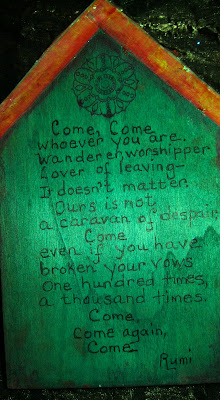 Come, Come
whoever you are.
Wanderer, worshipper
Lover of leaving-
It doesn't matter.
Ours is not
a caravan of despair,
Come
even if you have
broken your vows
One hundred times,
a thousand times.
Come,
come again,
Come
Rumi